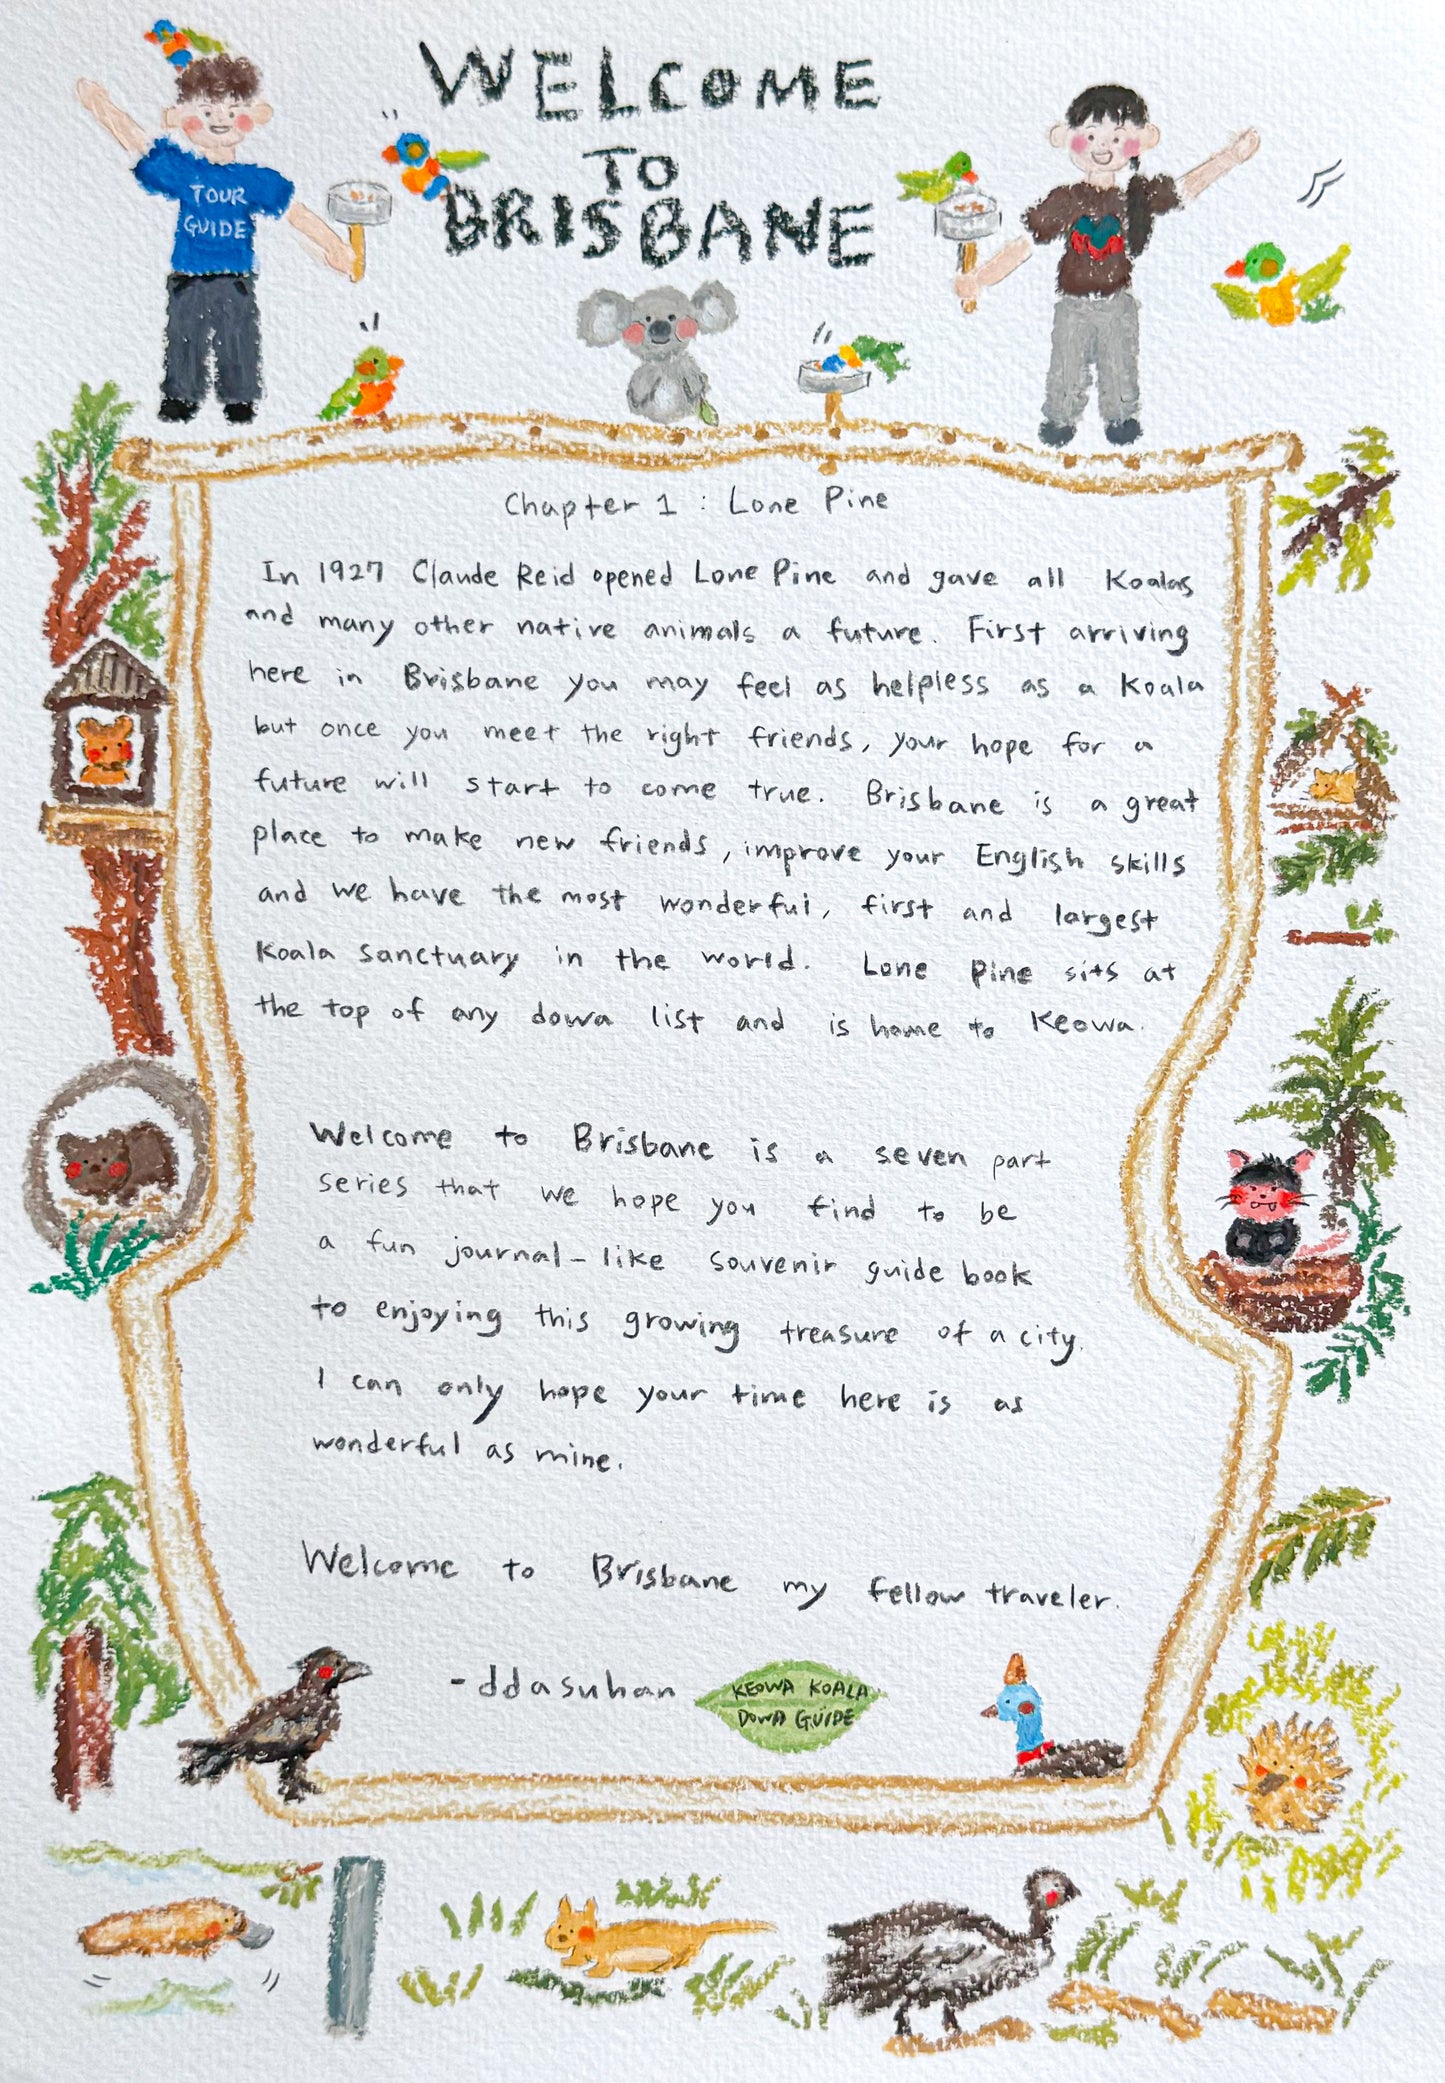 WELCOME
TO
BRISBANE
TOUR
GUIDE
Chapter 1 : Lone Pine
In 1927 Claude Reid opened Lone Pine and gave all Koalas
and many other native animals a future. First arriving
here in Brisbane you may feel as helpless as a Koala
but once you meet the right friends, your hope for a
future will start to come true. Brisbane is a great
place to make new friends, improve your English skills
and we have the most wonderful, first and largest
Koala Sanctuary in the world. Lone Pine sits at
the top of any dowa list and is home to Keowa.
Welcome to Brisbane is a seven part
series that we hope you find to be
a fun journal-like souvenir guide book
to enjoying this growing treasure of a city.
I can only hope your time here is as
wonderful as mine.
Welcome to Brisbane my fellow traveler.
-ddasuhan
KEOWA KOALA
DOWA GUIDE